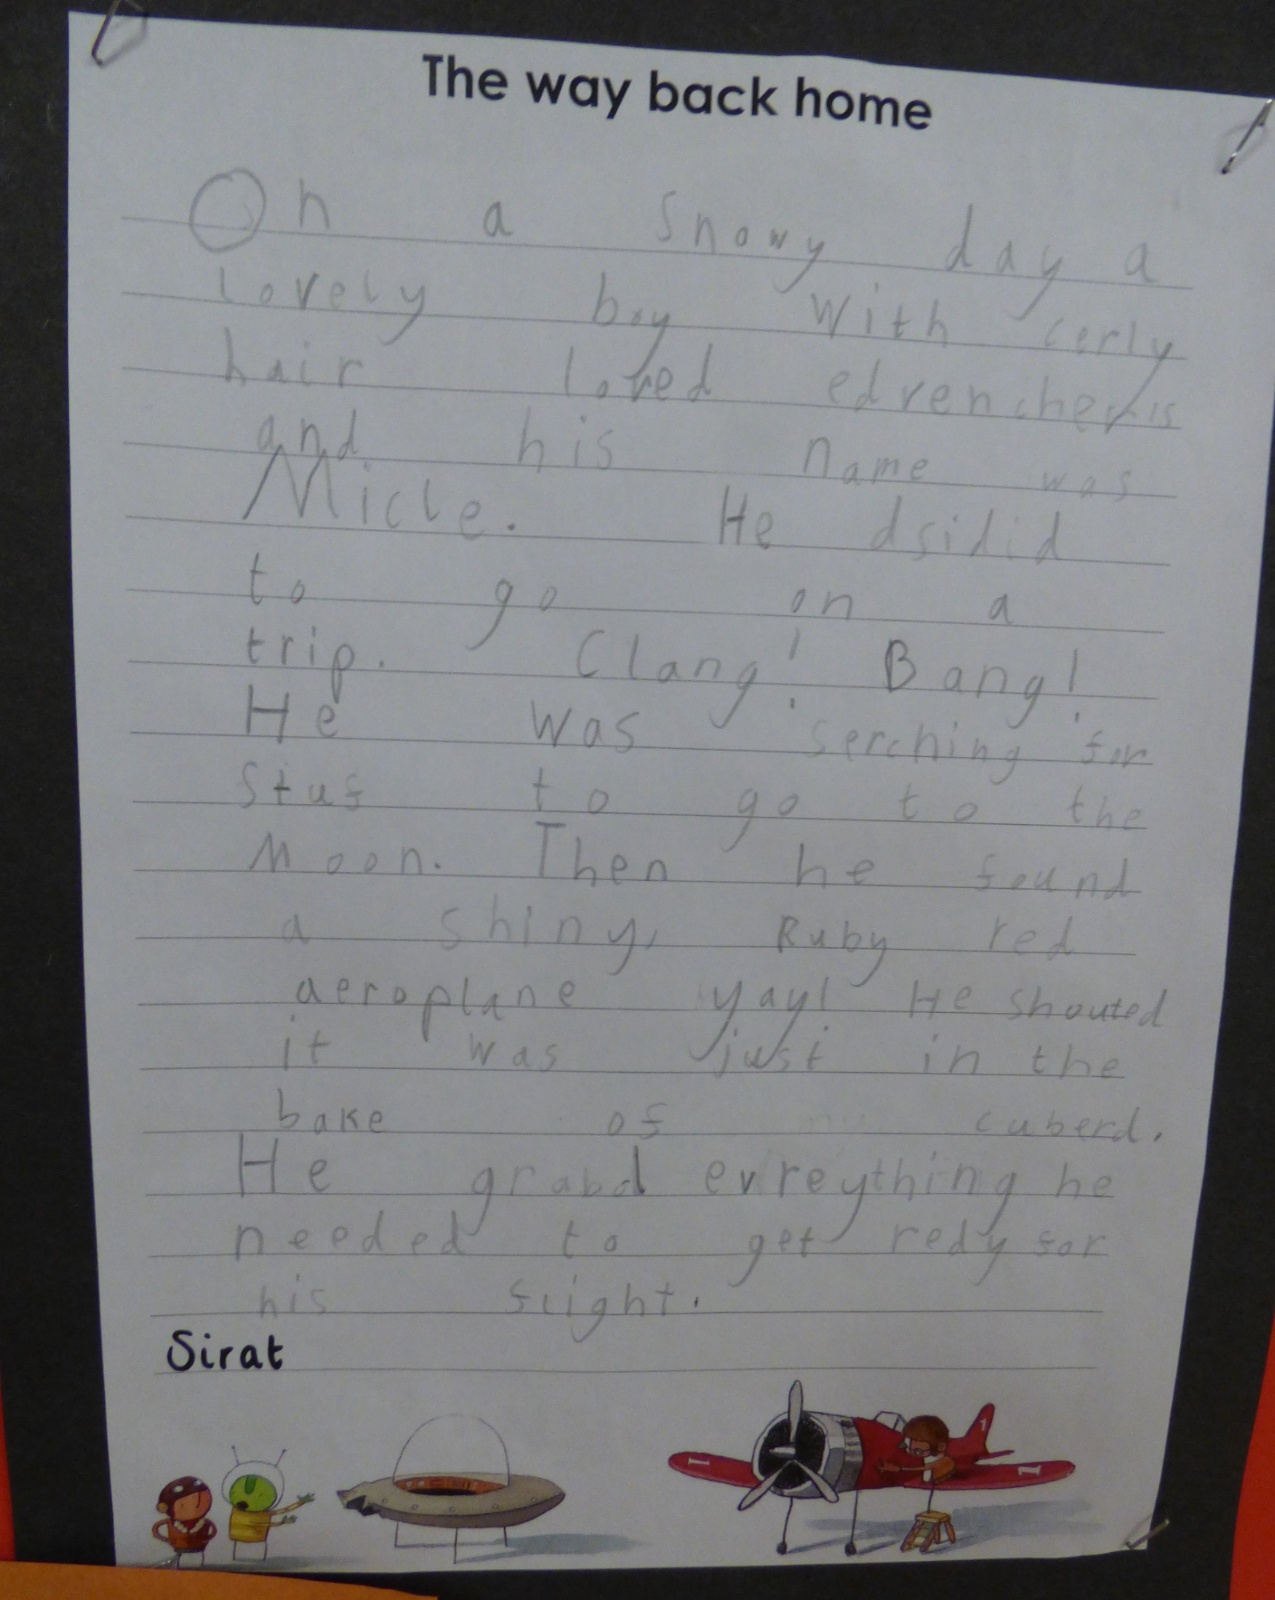 The way back home
On a snowy day a
lovely boy with cerly
hair loved
and his name was
Micle. He dsidid
to go on a
trip. Clang! Bang!
He was serching for
stuf to go to the
Moon. Then he found
a shiny, Ruby red
aeroplane yay! He shouted
it was just in the
bake of cuberd.
He grabd evreything he
needed to get redy for
his flight.
Sirat
1
1
1